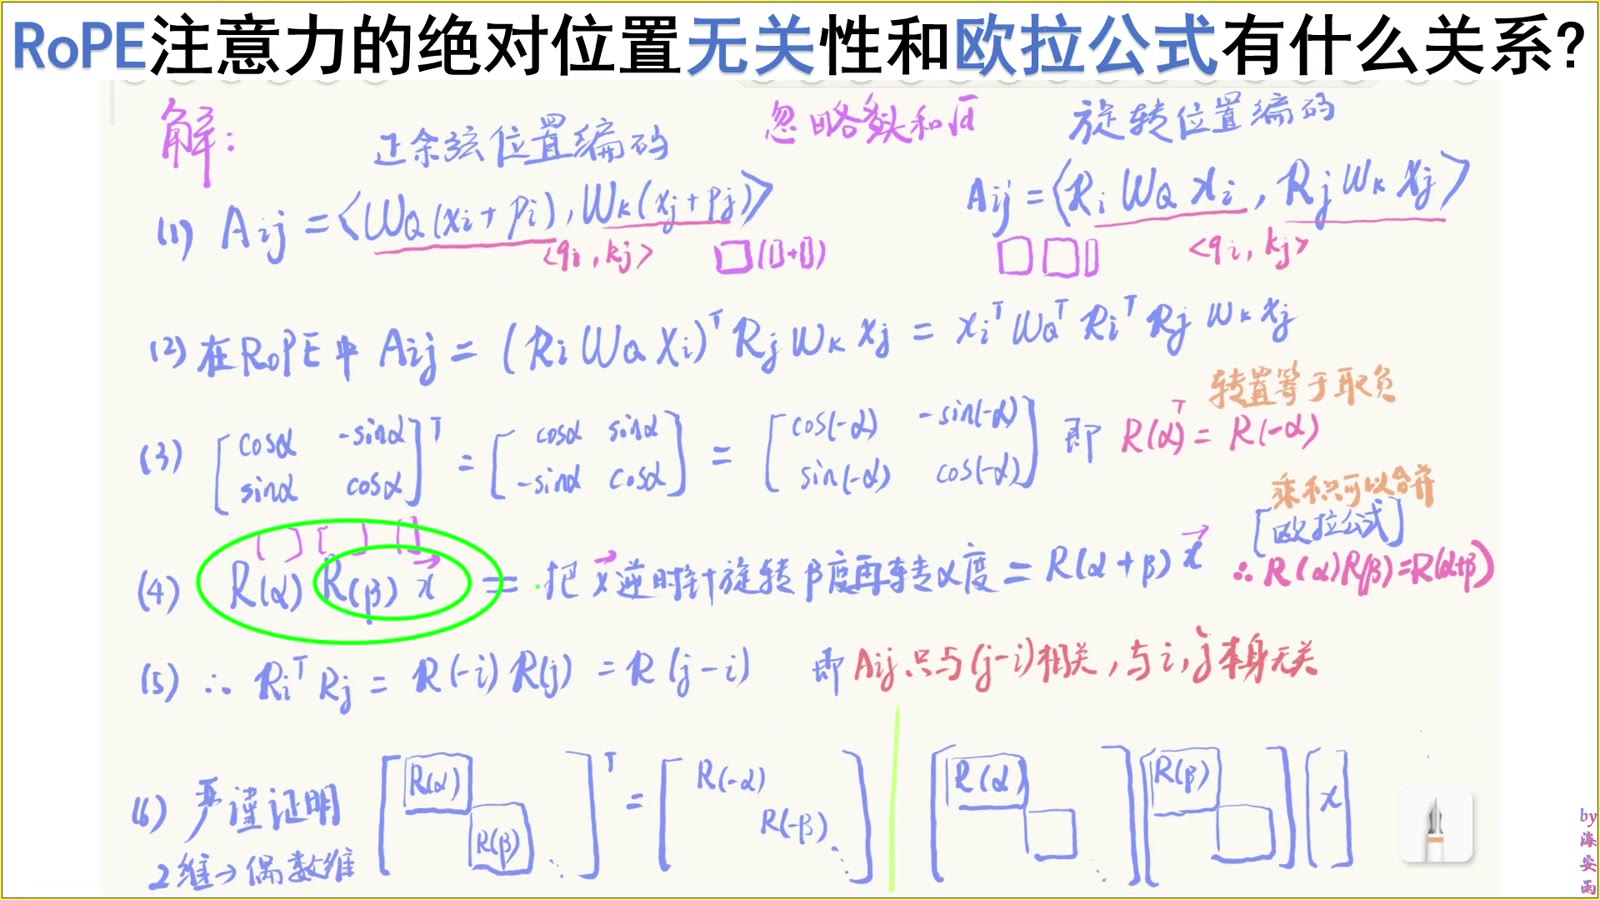 RoPE注意力的绝对位置无关性和欧拉公式有什么关系?
解: 正余弦位置编码 忽略多头和√d 旋转位置编码
(1) Aij = <WQ(xi+pi), WK(xj+pj)> Aij = <Ri WQ xi, Rj WK xj>
<qi, kj> □([]+[]) □□[] <qi, kj>
(2) 在RoPE中 Aij = (Ri WQ Xi)ᵀ Rj WK xj = xiᵀ WQᵀ Riᵀ Rj WK xj
转置等于取负
(3) [cosα -sinα]ᵀ = [cosα sinα] = [cos(-α) -sin(-α)] 即 R(α)ᵀ = R(-α)
[sinα cosα] [-sinα cosα] [sin(-α) cos(-α)]
乘积可以合并
[欧拉公式]
(4) R(α) R(β) x⃗ = 把x⃗逆时针旋转β度再转α度 = R(α+β) x⃗ ∴ R(α)R(β)=R(α+β)
(5) ∴ Riᵀ Rj = R(-i) R(j) = R(j-i) 即 Aij只与(j-i)相关, 与i, j本身无关
(6) 严谨证明 [R(α) R(β) ⋱]ᵀ = [R(-α) R(-β) ⋱] [R(α)] [R(β)] [x]
2维→偶数维
by海安雨